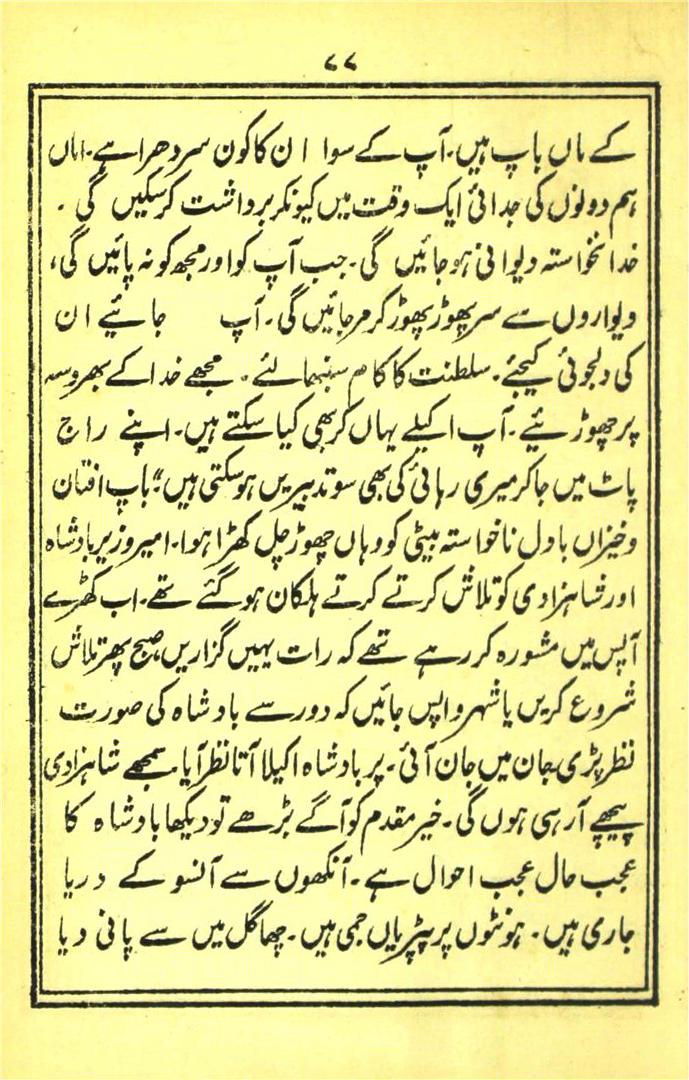 ۷۷
کے ماں باپ ہیں۔ آپ کے سوا ان کا کون سر دھرا ہے۔ اماں
ہم دونوں کی جدائی ایک وقت میں کیونکر برداشت کر سکیں گی ۔
خدانخواستہ دیوانی ہو جائیں گی۔ جب آپ کو اور مجھ کو نہ پائیں گی،
دیواروں سے سر پھوڑ پھوڑ کر مر جائیں گی۔ آپ جائیے ان
کی دلجوئی کیجئے۔ سلطنت کا کام سنبھالئے۔ مجھے خدا کے بھروسہ
پر چھوڑئیے۔ آپ اکیلے یہاں کر بھی کیا سکتے ہیں۔ اپنے راج
پاٹ میں جا کر میری رہائی کی بھی سو تدبیریں ہو سکتی ہیں؛" باپ افتان
وخیزاں بادل ناخواستہ بیٹی کو وہاں چھوڑ چل کھڑا ہوا۔ امیر وزیر بادشاہ
اور شاہزادی کو تلاش کرتے کرتے ہلکان ہو گئے تھے۔ اب کھڑے
آپس میں مشورہ کر رہے تھے کہ رات یہیں گزاریں صبح پھر تلاش
شروع کریں یا شہر واپس جائیں کہ دور سے بادشاہ کی صورت
نظر پڑی جان میں جان آئی۔ پر بادشاہ اکیلا آتا نظر آیا سمجھے شاہزادی
پیچھے آرہی ہوں گی۔ خیر مقدم کو آگے بڑھے تو دیکھا بادشاہ کا
عجب حال عجب احوال ہے۔ آنکھوں سے آنسو کے دریا
جاری ہیں۔ ہونٹوں پر پپڑیاں جمی ہیں۔ چھاگل میں سے پانی دیا